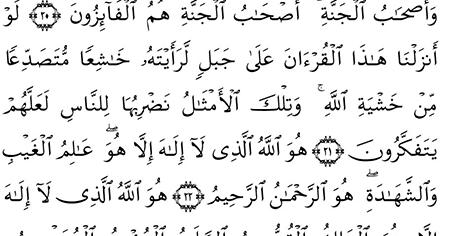 وَأَصْحَٰبُ ٱلْجَنَّةِ ۚ أَصْحَٰبُ ٱلْجَنَّةِ هُمُ ٱلْفَآئِزُونَ ۝٢٠ لَوْ
أَنزَلْنَا هَٰذَا ٱلْقُرْءَانَ عَلَىٰ جَبَلٍ لَّرَأَيْتَهُۥ خَٰشِعًا مُّتَصَدِّعًا
مِّنْ خَشْيَةِ ٱللَّهِ ۚ وَتِلْكَ ٱلْأَمْثَٰلُ نَضْرِبُهَا لِلنَّاسِ لَعَلَّهُمْ
يَتَفَكَّرُونَ ۝٢١ هُوَ ٱللَّهُ ٱلَّذِى لَآ إِلَٰهَ إِلَّا هُوَ ۖ عَٰلِمُ ٱلْغَيْبِ
وَٱلشَّهَٰدَةِ ۖ هُوَ ٱلرَّحْمَٰنُ ٱلرَّحِيمُ ۝٢٢ هُوَ ٱللَّهُ ٱلَّذِى لَآ إِلَٰهَ